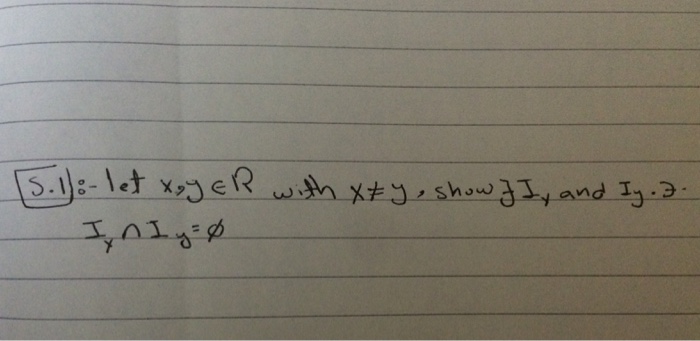 5.1):- let x,y ∈ R with x ≠ y, show ∃ I_x and I_y . ∋ .
I_x ∩ I_y = ∅